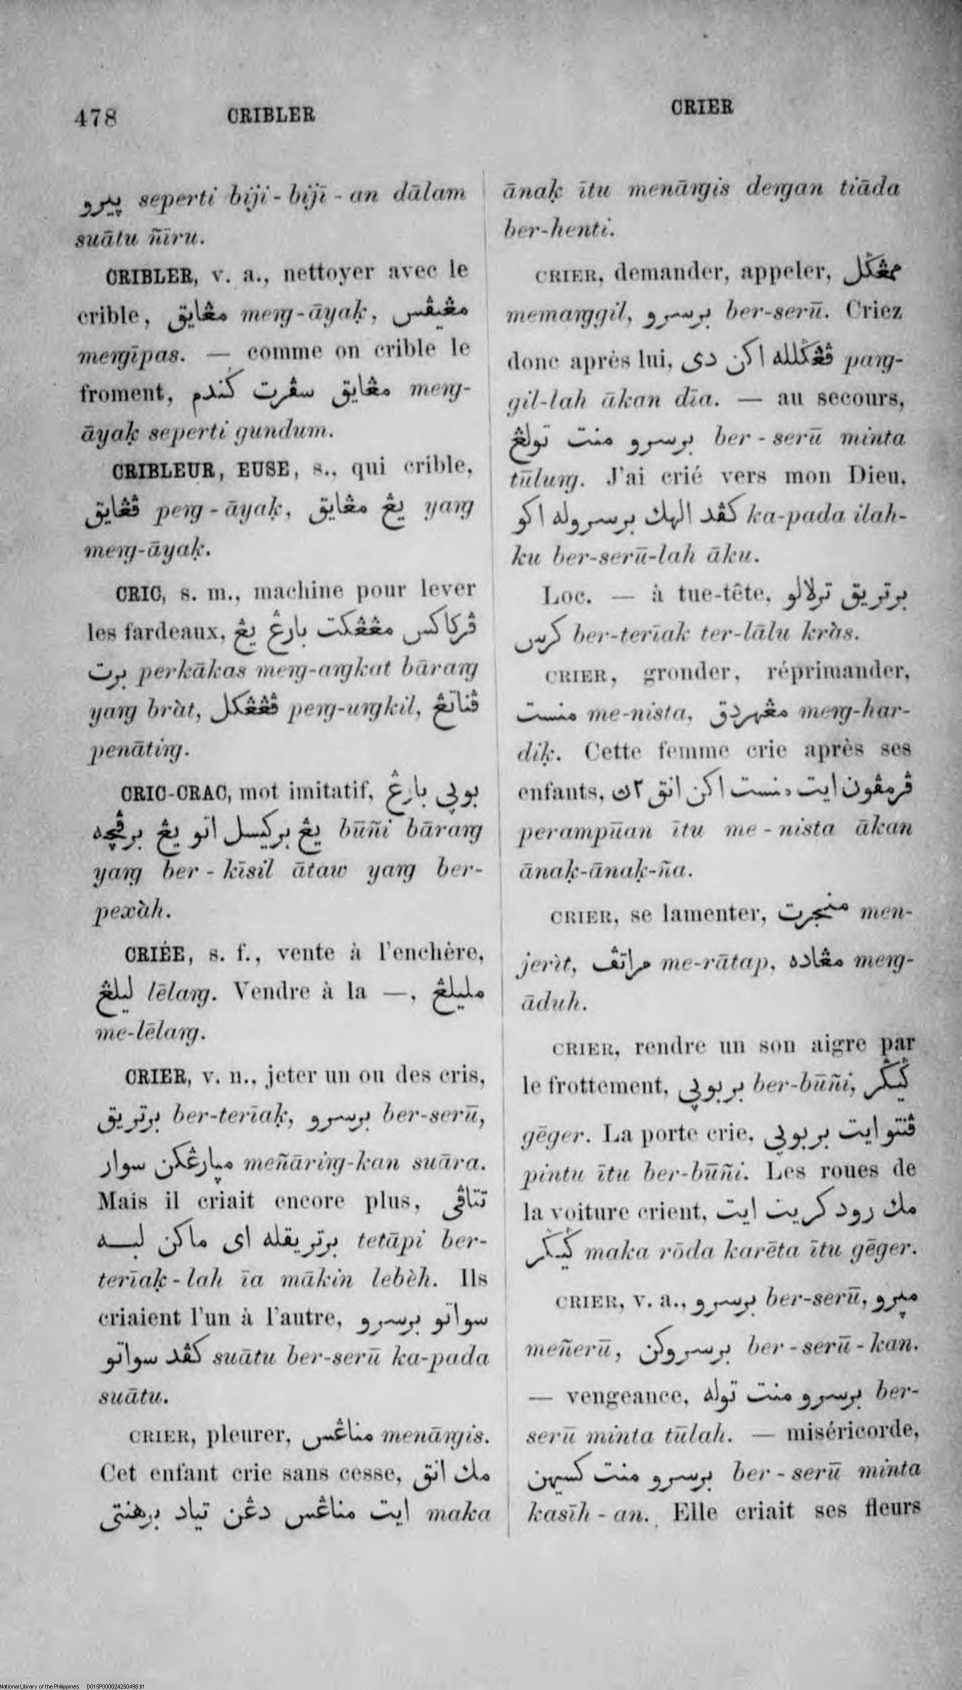 478 CRIBLER CRIER
ڽيرو seperti biji-bijī-an dālam
suātu ñīru.
CRIBLER, v. a., nettoyer avec le
crible, مڠايق meŋ-āyaḳ, مڠيڤس
meŋīpas. — comme on crible le
froment, مڠايق سڤرت كندم meŋ-
āyaḳ seperti gundum.
CRIBLEUR, EUSE, s., qui crible,
ڤڠايق peŋ-āyaḳ, يڠ مڠايق yaŋ
meŋ-āyaḳ.
CRIC, s. m., machine pour lever
les fardeaux, ڤركاكس مڠڠكت بارڠ يڠ
برت perkākas meŋ-aŋkat bāraŋ
yaŋ bràt, ڤڠڠكل peŋ-uŋkil, ڤناتڠ
penātiŋ.
CRIC-CRAC, mot imitatif, بوڽي بارڠ
يڠ بركيسل اتو يڠ برڤچه būñi bāraŋ
yaŋ ber-kīsil ātaw yaŋ ber-
pexàh.
CRIÉE, s. f., vente à l'enchère,
ليلڠ lēlaŋ. Vendre à la —, مليلڠ
me-lēlaŋ.
CRIER, v. n., jeter un ou des cris,
برتريق ber-terīaḳ, برسرو ber-serū,
مڽارڠكن سوار meñāriŋ-kan suāra.
Mais il criait encore plus, تتاڤي
برتريقله اى ماكن لبه tetāpi ber-
terīaḳ-lah īa mākin lebèh. Ils
criaient l'un à l'autre, سواتو برسرو
كڤد سواتو suātu ber-serū ka-pada
suātu.
CRIER, pleurer, مناڠس menāŋis.
Cet enfant crie sans cesse, مك انق
ايت مناڠس دڠن تياد برهنتى maka
ānaḳ ītu menāŋis deŋan tiāda
ber-henti.
CRIER, demander, appeler, ممڠݢل
memaŋgil, برسرو ber-serū. Criez
donc après lui, ڤڠݢلله اكن دى paŋ-
gil-lah ākan dīa. — au secours,
برسرو منت تولڠ ber-serū minta
tūluŋ. J'ai crié vers mon Dieu,
كڤد الهك برسروله اكو ka-pada ilah-
ku ber-serū-lah āku.
Loc. — à tue-tête, برتريق ترلالو
كرس ber-terīak ter-lālu kràs.
CRIER, gronder, réprimander,
منست me-nista, مڠهردق meŋ-har-
diḳ. Cette femme crie après ses
enfants, ڤرمڤون ايت منست اكن انق٢ڽ
perampūan ītu me-nista ākan
ānaḳ-ānaḳ-ña.
CRIER, se lamenter, منجرت men-
jerìt, مراتڤ me-rātap, مڠاده meŋ-
āduh.
CRIER, rendre un son aigre par
le frottement, بربوڽي ber-būñi, ݢيݢر
gēger. La porte crie, ڤنتو ايت بربوڽي
pintu ītu ber-būñi. Les roues de
la voiture crient, مك رود كريت ايت
ݢيݢر maka rōda karēta ītu gēger.
CRIER, v. a., برسرو ber-serū, مڽرو
meñerū, برسروكن ber-serū-kan.
— vengeance, برسرو منت توله ber-
serū minta tūlah. — miséricorde,
برسرو منت كسيهن ber-serū minta
kasīh-an. Elle criait ses fleurs
National Library of the Philippines